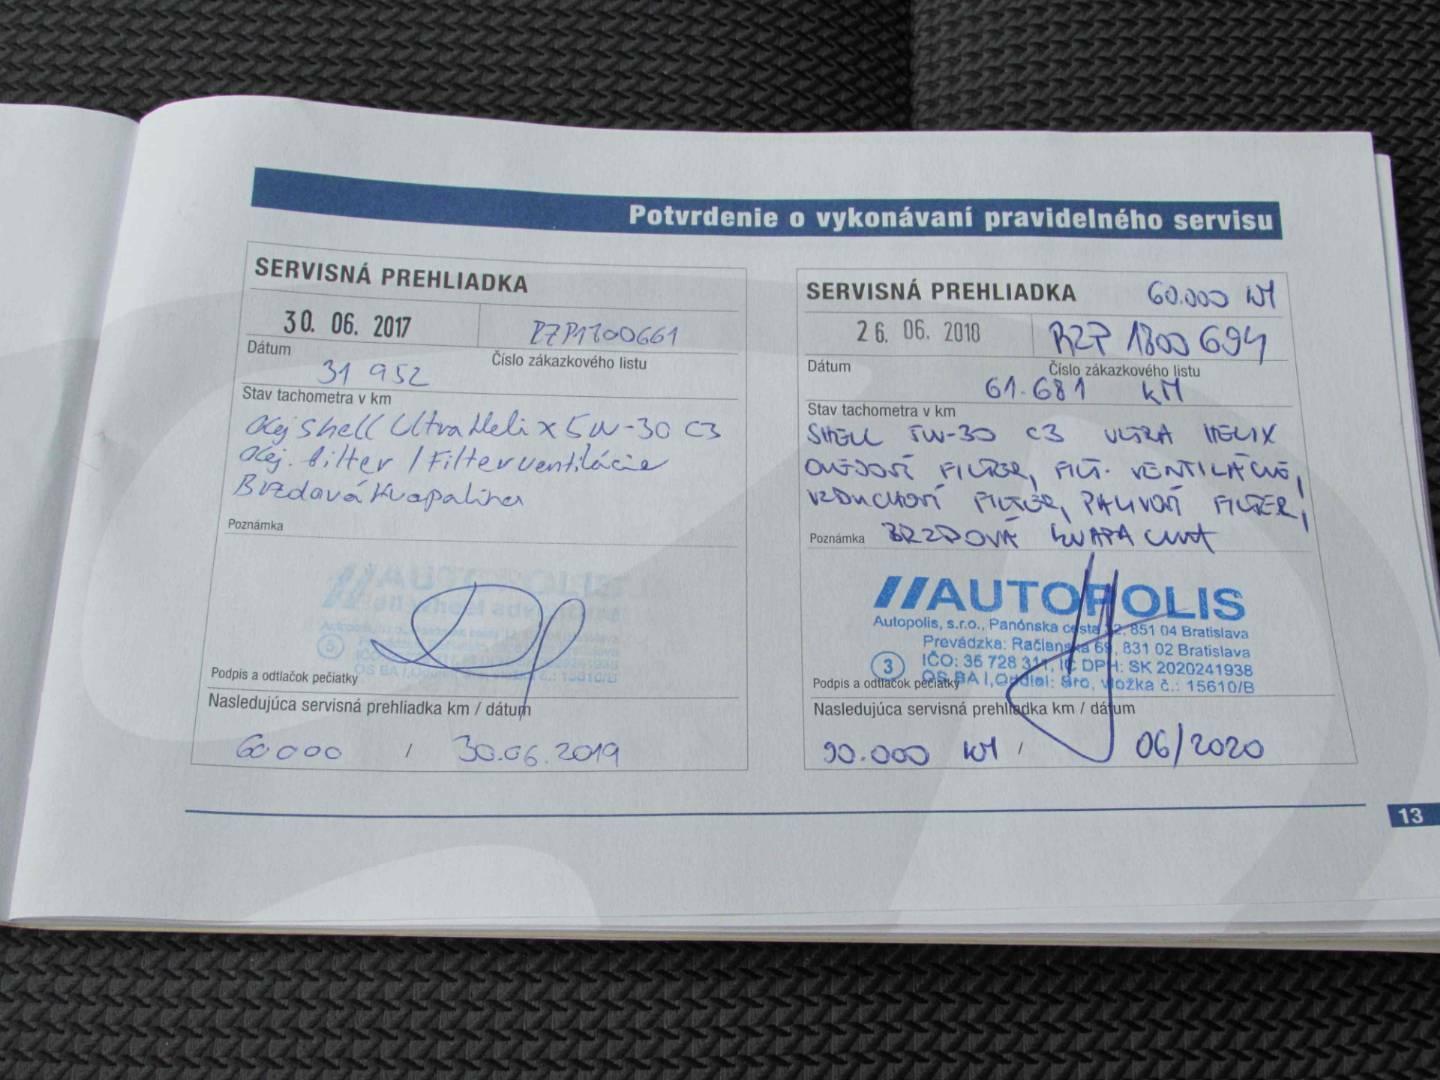 Potvrdenie o vykonávaní pravidelného servisu
SERVISNÁ PREHLIADKA
30. 06. 2017
RZP1700661
Dátum
Číslo zákazkového listu
31 952
Stav tachometra v km
Olej Shell Ultra Helix 5W-30 C3
Olej. filter / Filter ventilácie
Brzdová kvapalina
Poznámka
AUTOPOLIS
Podpis a odtlačok pečiatky
Nasledujúca servisná prehliadka km / dátum
60000 / 30.06.2019
SERVISNÁ PREHLIADKA 60.000 KM
26. 06. 2018
RZP 1800694
Dátum
Číslo zákazkového listu
61.681 KM
Stav tachometra v km
SHELL 5W-30 C3 ULTRA HELIX
OLEJOVÝ FILTER, FILT. VENTILÁCIE,
VZDUCHOVÝ FILTER, PALIVOVÝ FILTER,
Poznámka BRZDOVÁ KVAPALINA
AUTOPOLIS
Autopolis, s.r.o., Panónska cesta 32, 851 04 Bratislava
Prevádzka: Račianska 69, 831 02 Bratislava
3 IČO: 35 728 311, IČ DPH: SK 2020241938
OS BA I, Oddiel: Sro, vložka č.: 15610/B
Podpis a odtlačok pečiatky
Nasledujúca servisná prehliadka km / dátum
90.000 KM / 06/2020
13